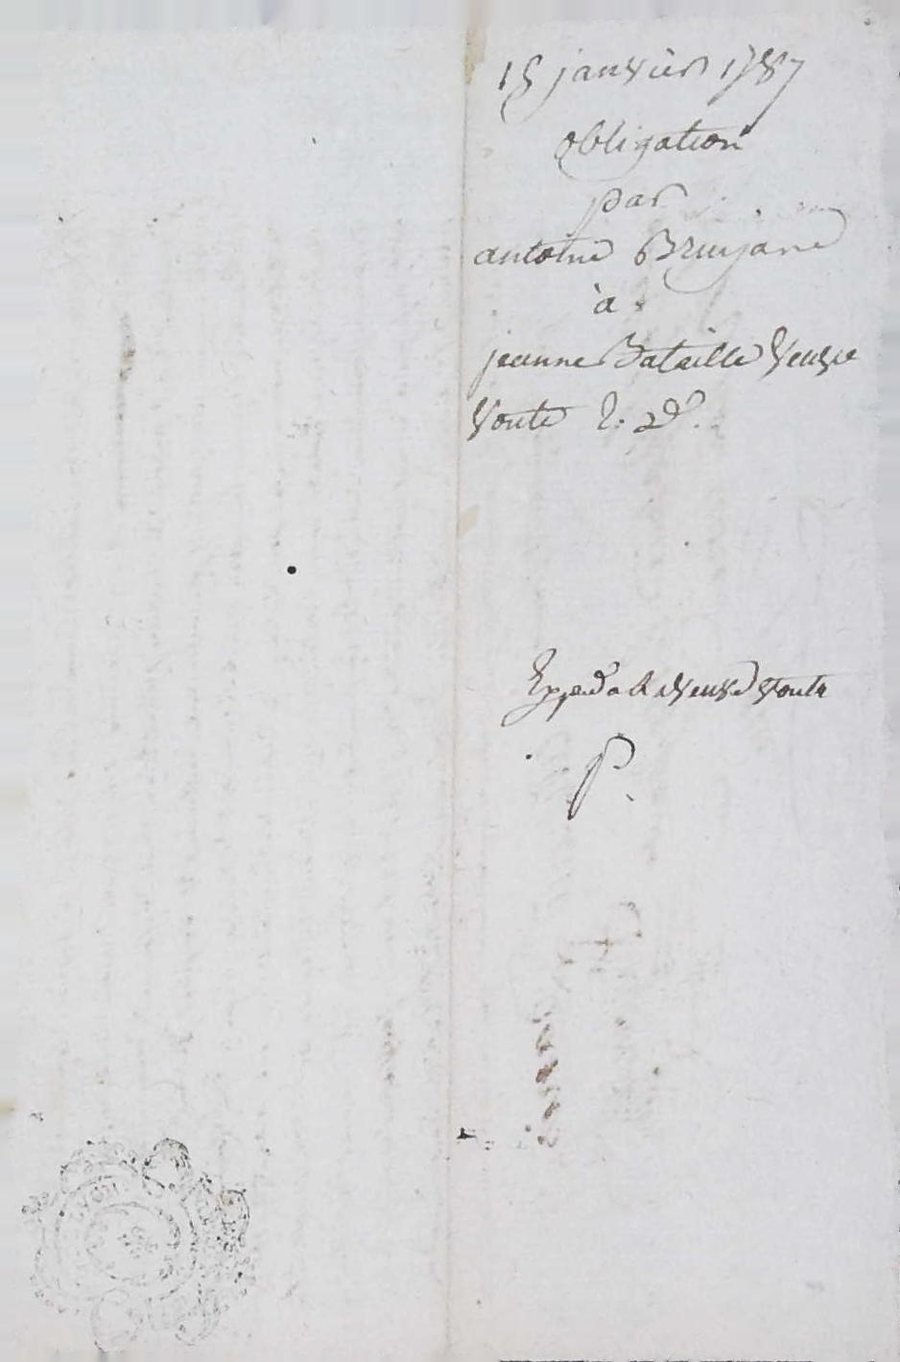 15 janvier 1787
obligation
par
antoine Brunjane
à
jeanne Bataille Veuve
Voute
Exped a la Veuve Voute
P.